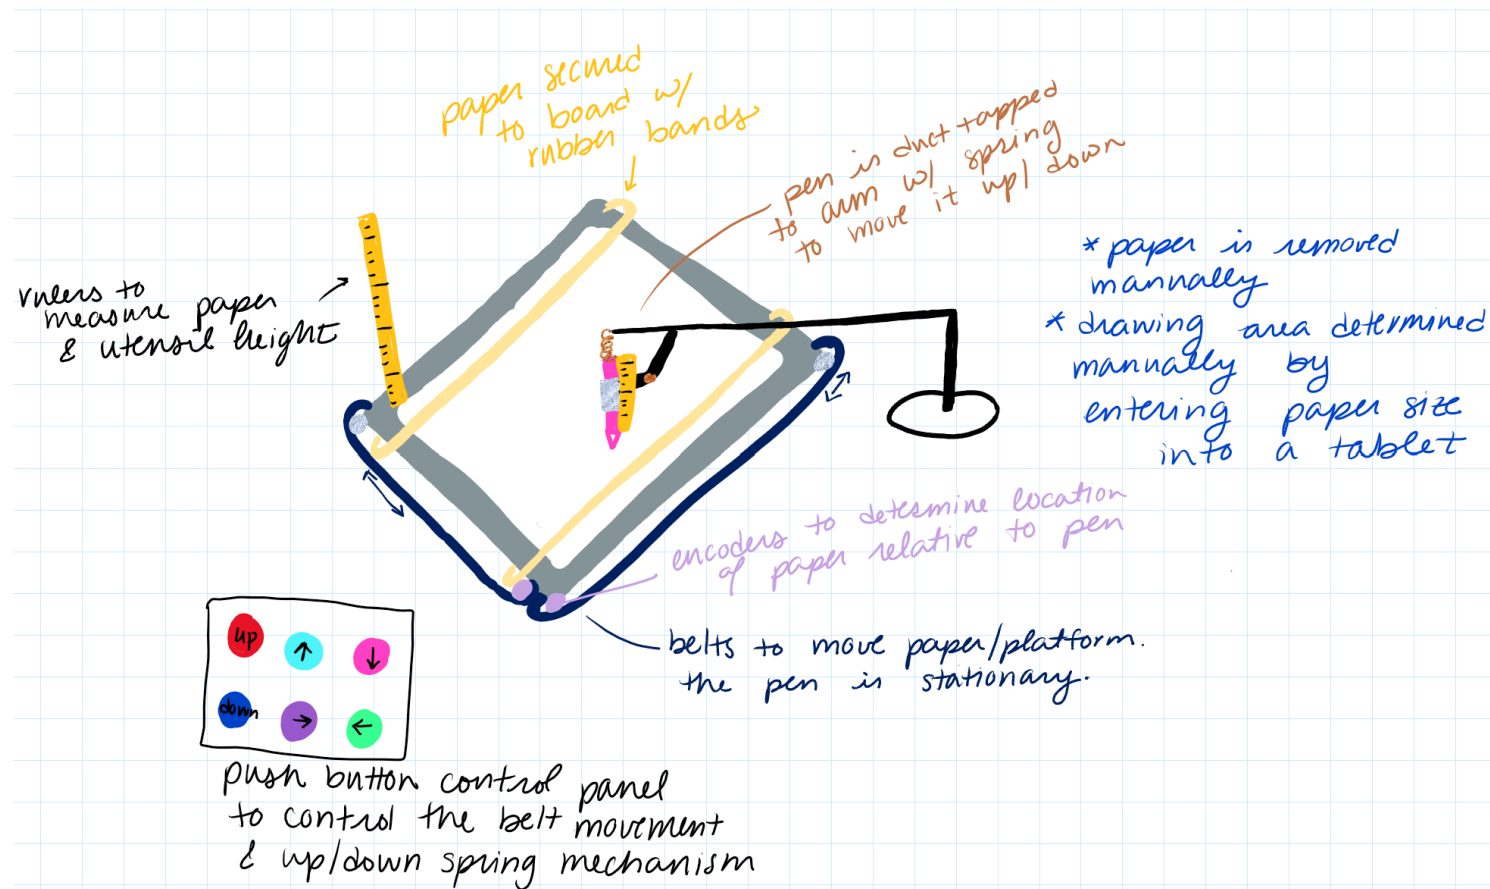 paper secured
to board w/
rubber bands
pen is duct tapped
to arm w/ spring
to move it up/down
rulers to
measure paper
& utensil height
* paper is removed
mannally
* drawing area determined
manually by
entering paper size
into a tablet
encoders to determine location
of paper relative to pen
belts to move paper/platform.
the pen is stationary.
up ↑ ↓
down → ←
push button control panel
to control the belt movement
& up/down spring mechanism